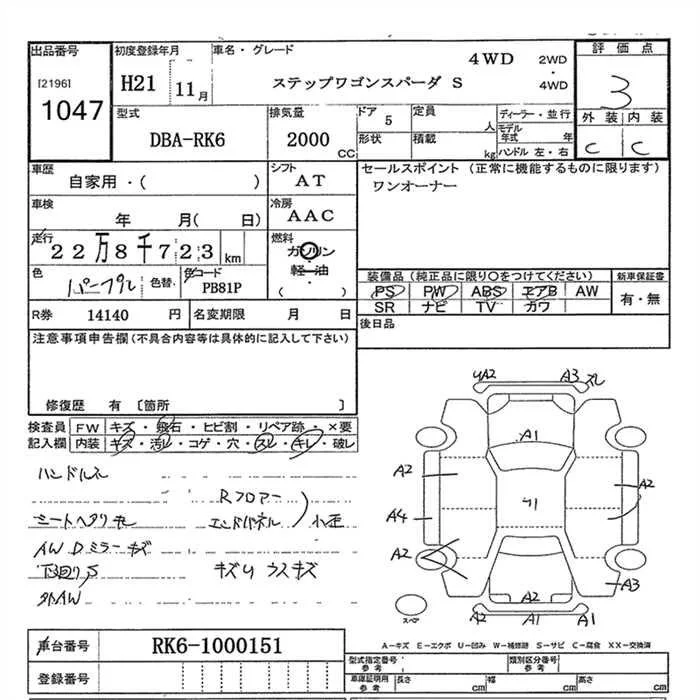 出品番号 初度登録年月 車名・グレード 4WD 2WD・4WD 評価点
[2196] H21 11月 ステップワゴンスパーダ S 3
1047 外装 内装
型式 排気量 ドア 5 定員 人 ディーラー・並行
DBA-RK6 2000 CC 形状 積載 kg モデル年式 年 ハンドル 左・右 C C
車歴 シフト セールスポイント(正常に機能するものに限ります)
自家用・( ) AT ワンオーナー
車検 冷房
年 月( 日) AAC
走行 燃料
22万8千723km ガソリン
軽・油
色 色替 色コード ( ) 装備品(純正品に限り○をつけてください) 新車保証書
パープル PB81P PS PW ABS エアB AW 有・無
SR ナビ TV カワ
R券 14140 円 名変期限 月 日 後日品
注意事項申告欄(不具合内容等は具体的に記入して下さい)
修復歴 有 〔箇所 〕
検査員 FW キズ・飛石・ヒビ割・リペア跡・×要
記入欄 内装 キズ・汚レ・コゲ・穴・スレ・キレ・破レ
ハンドルス
Rフロアー
シートヘタリ エンドパネル 小歪
AW Dミラーキズ
下回りS キズU ウスキズ
外AW
A2 A3 ズレ
A1
A2 A2
A4
A2
A3
A2
A1 A1
スペア
A-キズ E-エクボ U-凹み W-補修跡 S-サビ C-腐食 XX-交換済
車台番号 RK6-1000151
型式指定番号 参考 類別区分番号 参考
登録番号 車庫証明用 参考 長さ cm 幅 cm 高さ cm